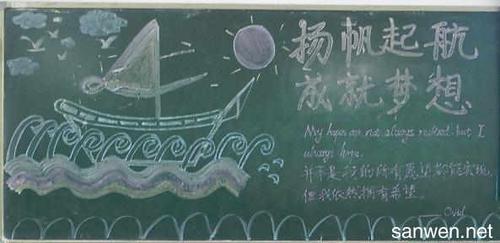 扬帆起航
放就梦想
My hopes are not always realized, but I
always hope.
并不是我的所有愿望都能实现,
但我依然拥有希望。
— Ovid
sanwen.net